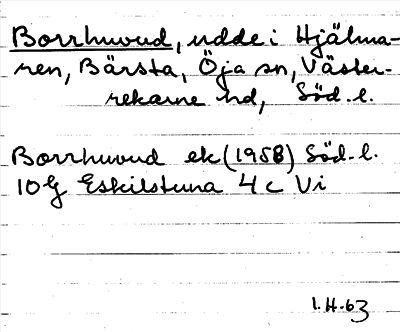 Borrhuvud, udde i Hjälma-
ren, Bärsta, Öja sn, Väster-
rekarne hd, Söd.l.
Borrhuvud ek (1958) Söd.l.
10G Eskilstuna 4 c Vi
1.H.63